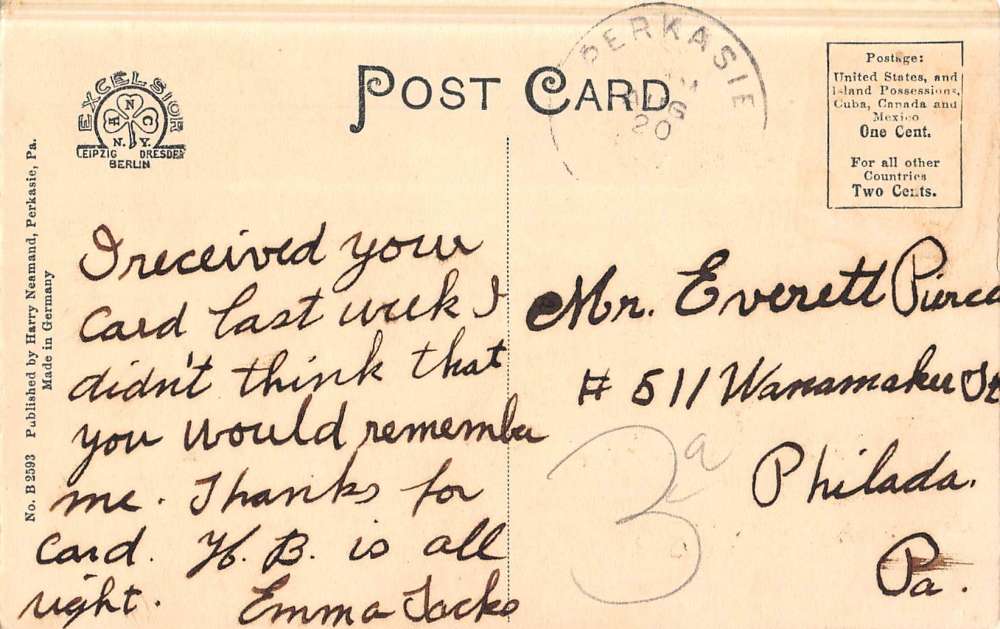 POST CARD
PERKASIE
AUG
20
EXCELSIOR
N
H C
N.Y.
LEIPZIG DRESDEN
BERLIN
Postage:
United States, and
Island Possessions,
Cuba, Canada and
Mexico
One Cent.
For all other
Countries
Two Cents.
No. B 2593 Published by Harry Neamand, Perkasie, Pa.
Made in Germany
I received your
card last week I
didn't think that
you would remember
me. Thanks for
card. H. B. is all
right. Emma
Mr. Everett Pierce
# 511 Wanamaker St
Philada.
Pa.
3a